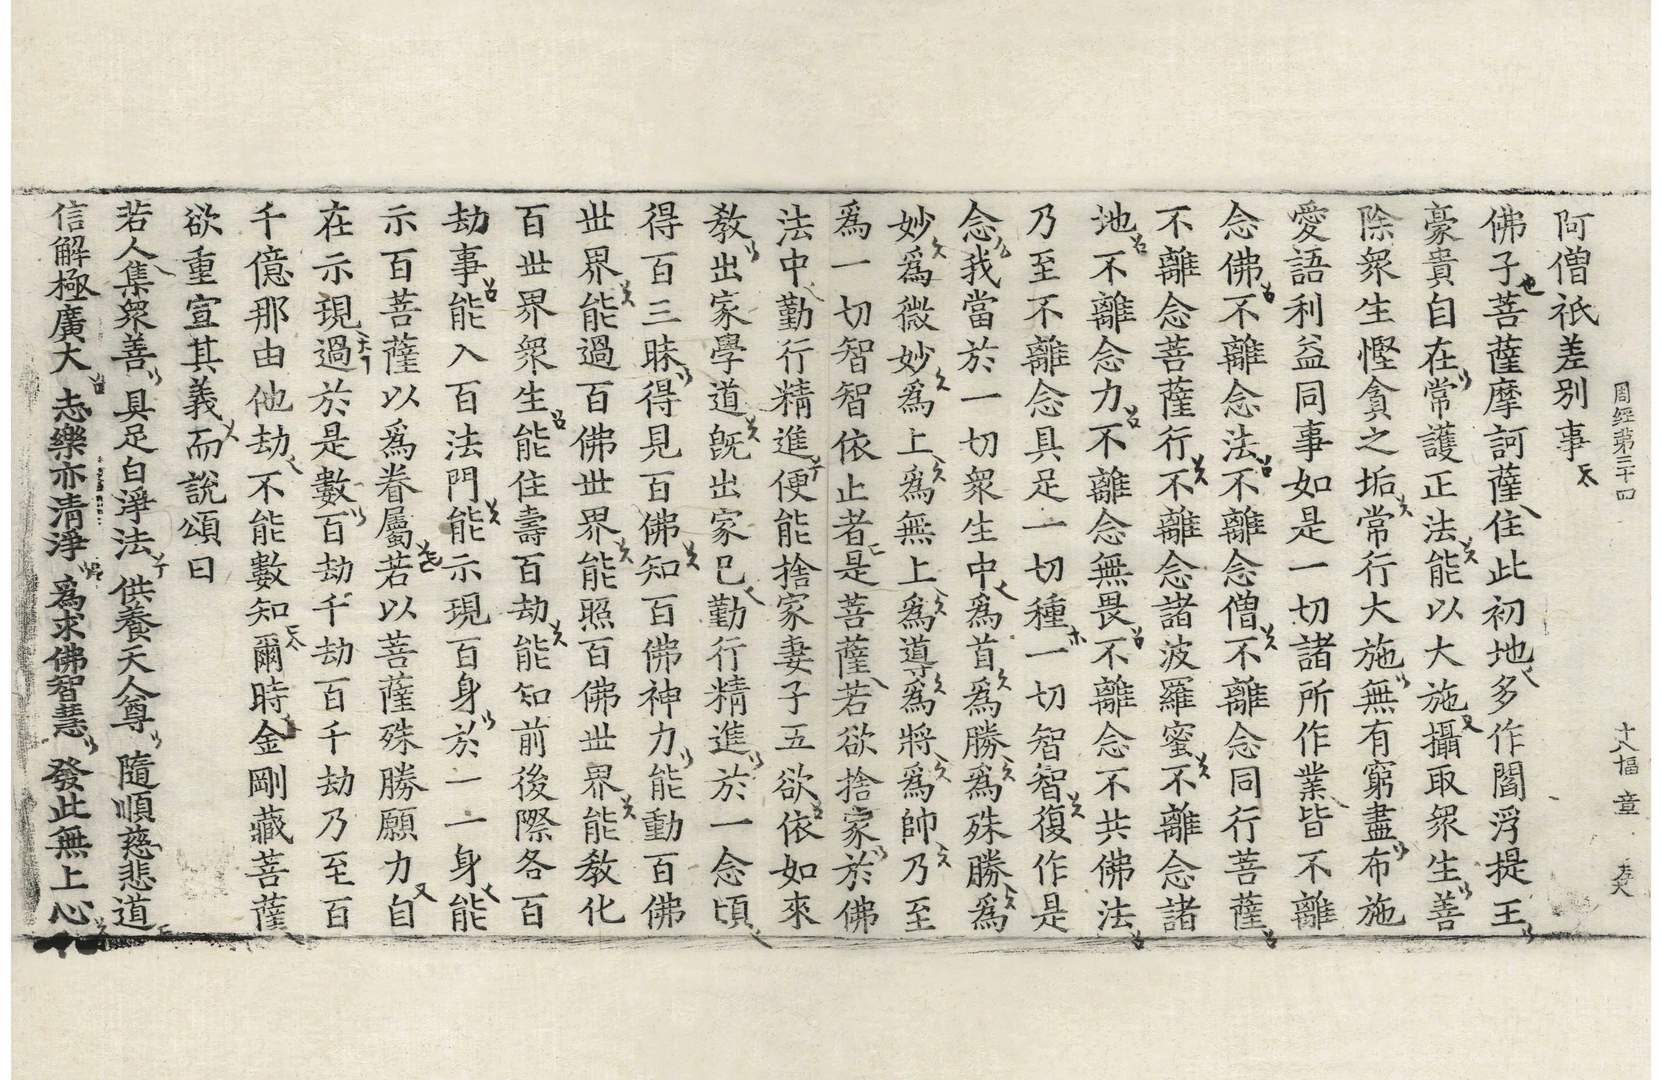 周經第三十四　十八幅　章
阿僧祇差別事
佛子菩薩摩訶薩住此初地多作閻浮提王
豪貴自在常護正法能以大施攝取衆生善
除衆生慳貪之垢常行大施無有窮盡布施
愛語利益同事如是一切諸所作業皆不離
念佛不離念法不離念僧不離念同行菩薩
不離念菩薩行不離念諸波羅蜜不離念諸
地不離念力不離念無畏不離念不共佛法
乃至不離念具足一切種一切智智復作是
念我當於一切衆生中爲首爲勝爲殊勝爲
妙爲微妙爲上爲無上爲導爲將爲帥乃至
爲一切智智依止者是菩薩若欲捨家於佛
法中勤行精進便能捨家妻子五欲依如來
教出家學道旣出家已勤行精進於一念頃
得百三昧得見百佛知百佛神力能動百佛
世界能過百佛世界能照百佛世界能教化
百世界衆生能住壽百劫能知前後際各百
劫事能入百法門能示現百身於一一身能
示百菩薩以爲眷屬若以菩薩殊勝願力自
在示現過於是數百劫千劫百千劫乃至百
千億那由他劫不能數知爾時金剛藏菩薩
欲重宣其義而說頌曰
若人集衆善　具足白淨法　供養天人尊　隨順慈悲道
信解極廣大　志樂亦清淨　爲求佛智慧　發此無上心